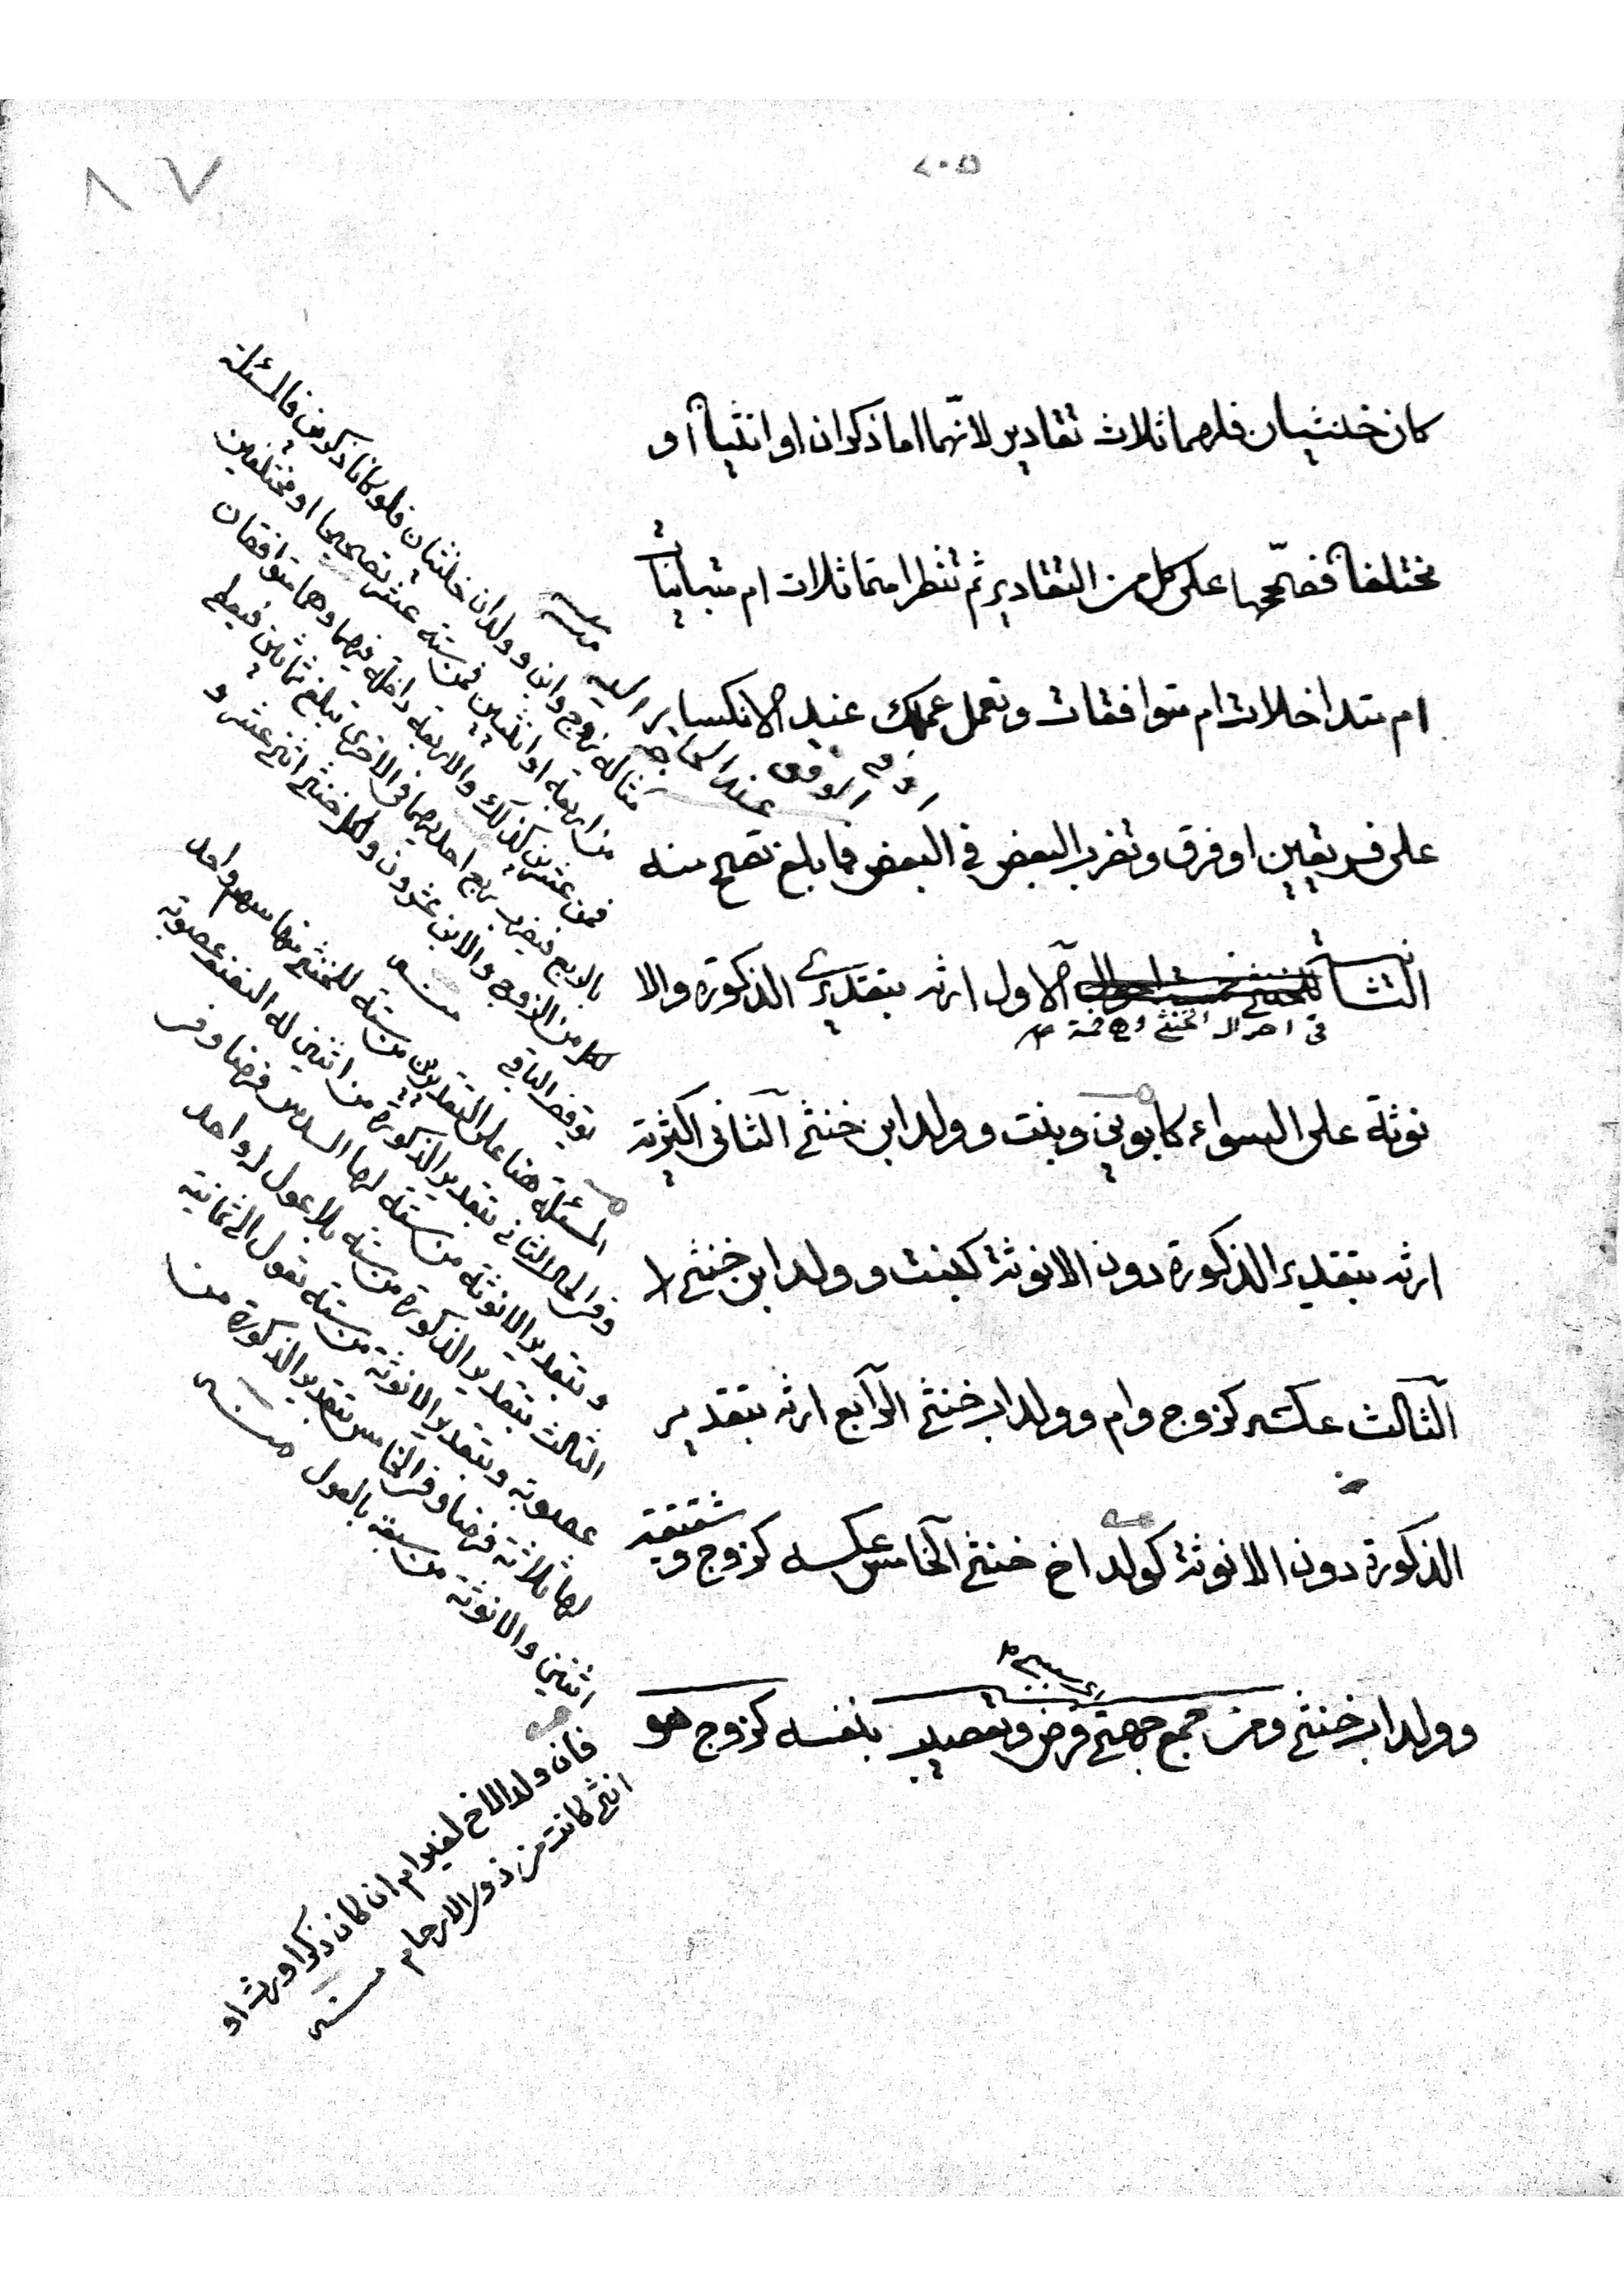 ٢٠٥
٨٧
كان خنثيان فلهما ثلاث تقادير لانّهما اما ذكران او انثيان او
مختلفان فصحّحها على كل من التقادير ثم تنظر امتماثلات ام متباينات
ام متداخلات ام متوافقات وتعمل عملك عند الانكسار
على فريقين او فرق وتضرب البعض في البعض فما بلغ تصح منه
الاول ارثه بتقديرى الذكورة والا
في احوال الخنثى وهي خمسة
نوثة على السواء كابوين وبنت وولد ابن خنثى الثانى اكثرية
ارثه بتقدير الذكورة دون الانوثة كبنت وولد ابن خنثى
الثالث عكسه كزوج وام وولد اب خنثى الرابع ارثه بتقدير
الذكورة دون الانوثة كولد اخ خنثى الخامس عكسه كزوج وشقيقة
وولد اب خنثى ومن جمع جهتى فرض وتعصيب بنفسه كزوج هو
مثاله زوج وابن وولدان خنثيان فلو كانا ذكرين فالمسئلة
من اربعة او انثيين فمن ستة عشر تصحيحا او مختلفين
فمن عشرين كذلك والاربعة داخلة فيهما وهما متوافقان
بالربع فيضرب ربع احديهما فى الاخرى تبلغ ثمانين فيعطى
لكل من الزوج والابن عشرون ولكل خنثى اثنى عشر و
يوقف الباقي
المسئلة هنا على التقديرين من ستة للخنثى منها سهم واحد
وفى الحال الثاني بتقدير الذكورة من اثنين له النصف عصوبة
وبتقدير الانوثة من ستة لها السدس فرضا وفى
الثالث بتقدير الذكورة من ستة بلا عول له واحد
عصوبة وبتقدير الانوثة من ستة تعول الى ثمانية
لها ثلاثة فرضا وفى الخامس بتقدير الذكورة من
اثنين والانوثة من سبعة بالعول
فان ولد الاخ لغير ام ان كان ذكرا ورث او
انثى كانت من ذوى الارحام